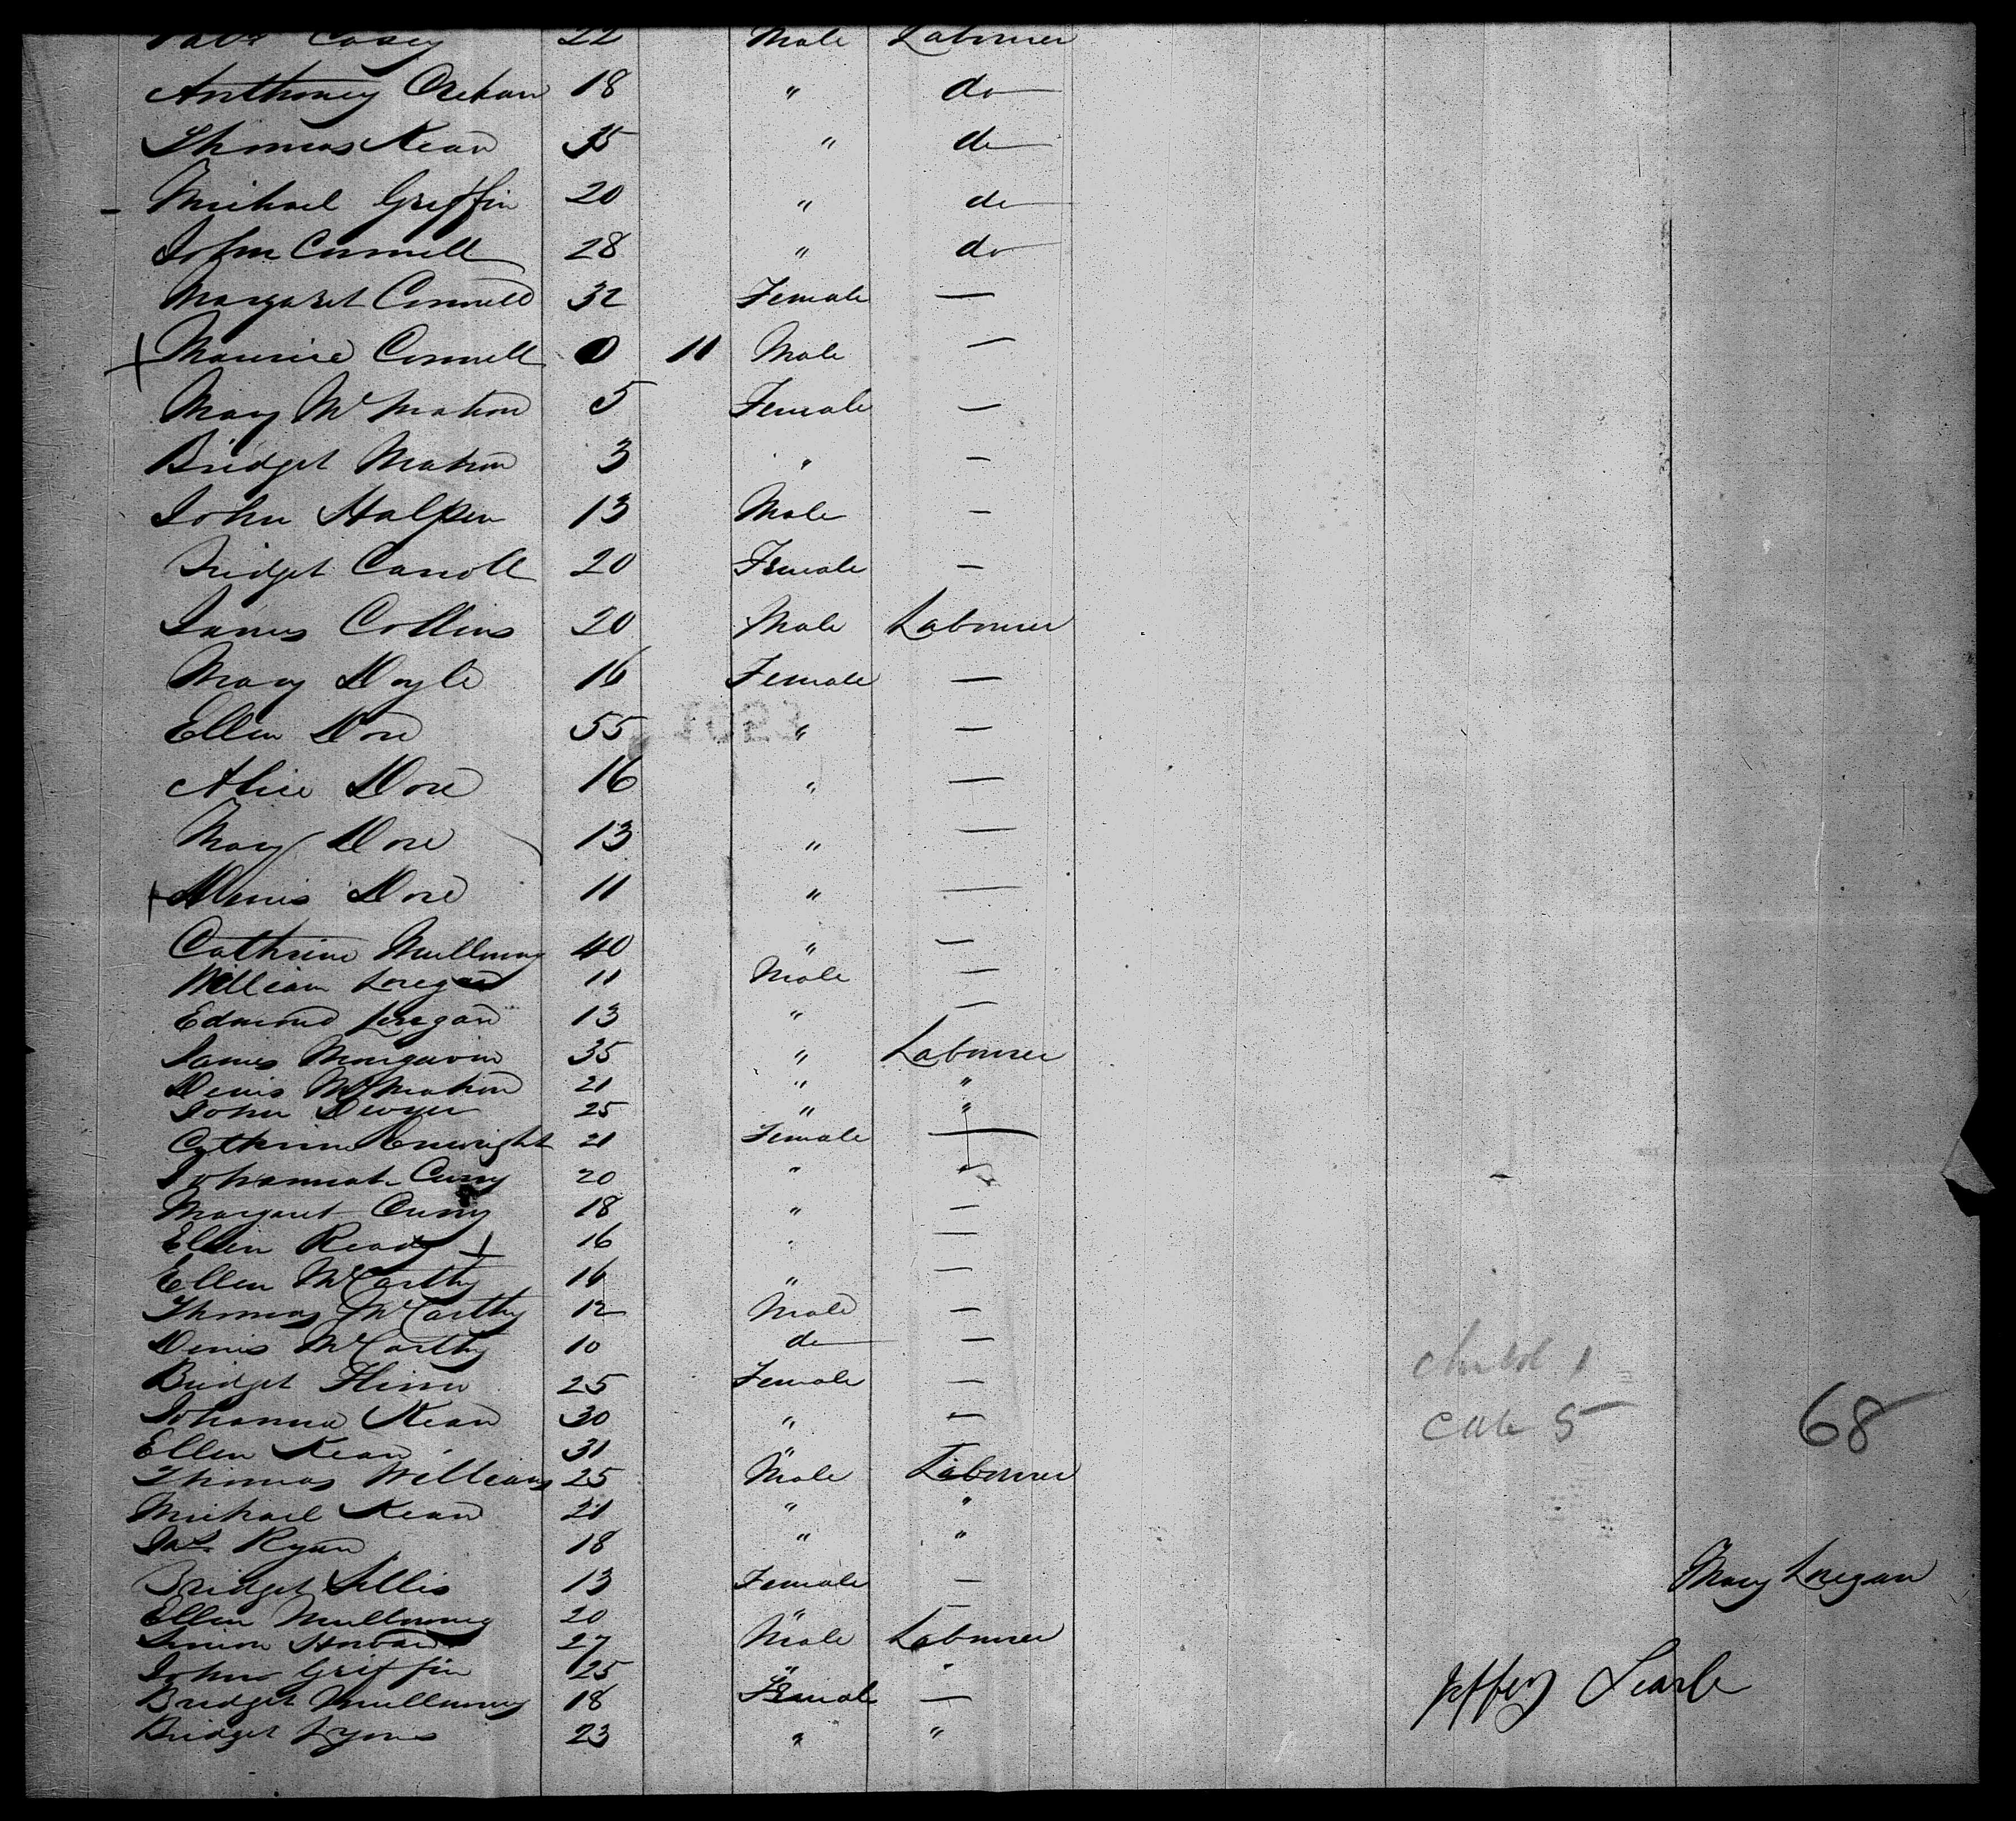 Casey 22 Male Labourer
Anthoney Crehan 18 " do
Thomas Kean 35 " do
Michael Griffin 20 " do
John Connell 28 " do
Margaret Connell 32 Female —
Maurice Connell 0 11 Male —
Mary McMahon 5 Female —
Bridget Mahon 3 " —
John Halpen 13 Male —
Bridget Carroll 20 Female —
James Collins 20 Male Labourer
Mary Doyle 16 Female —
Ellen Dore 55 " —
Alice Dore 16 " —
Mary Dore 13 " —
Denis Dore 11 " —
Cathrine Mullowny 40 " —
William 11 Male —
Edmond 13 " —
James Mungavin 35 " Labourer
Denis McMahon 21 " "
John Dwyer 25 " "
Cathrine Enwright 21 Female —
Johannah Curry 20 " "
Margaret Curry 18 " —
Ellen Ready 16 " —
Ellen McCarthy 16 " —
Thomas McCarthy 12 Male —
Denis McCarthy 10 do —
Bridget Flinn 25 Female —
Johanna Kean 30 " —
Ellen Kean 31 "
Thomas Williams 25 Male Labourer
Michael Kean 21 " "
Jas Ryan 18 " "
Bridget Lillis 13 Female —
Ellen Mullowny 20 " —
Simon 27 Male Labourer
John Griffin 25 " "
Bridget Mullowny 18 Female —
Bridget Lyons 23 " "
1
5
68
Mary
Jeffery Searle